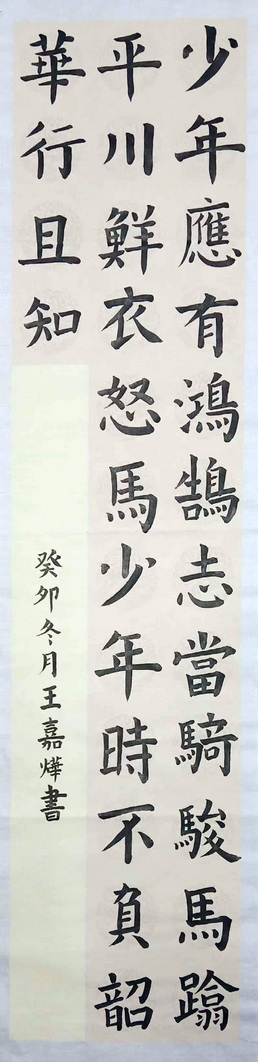 少年應有鴻鵠志當騎駿馬蹹
平川鮮衣怒馬少年時不負韶
華行且知
癸卯冬月王嘉燁書